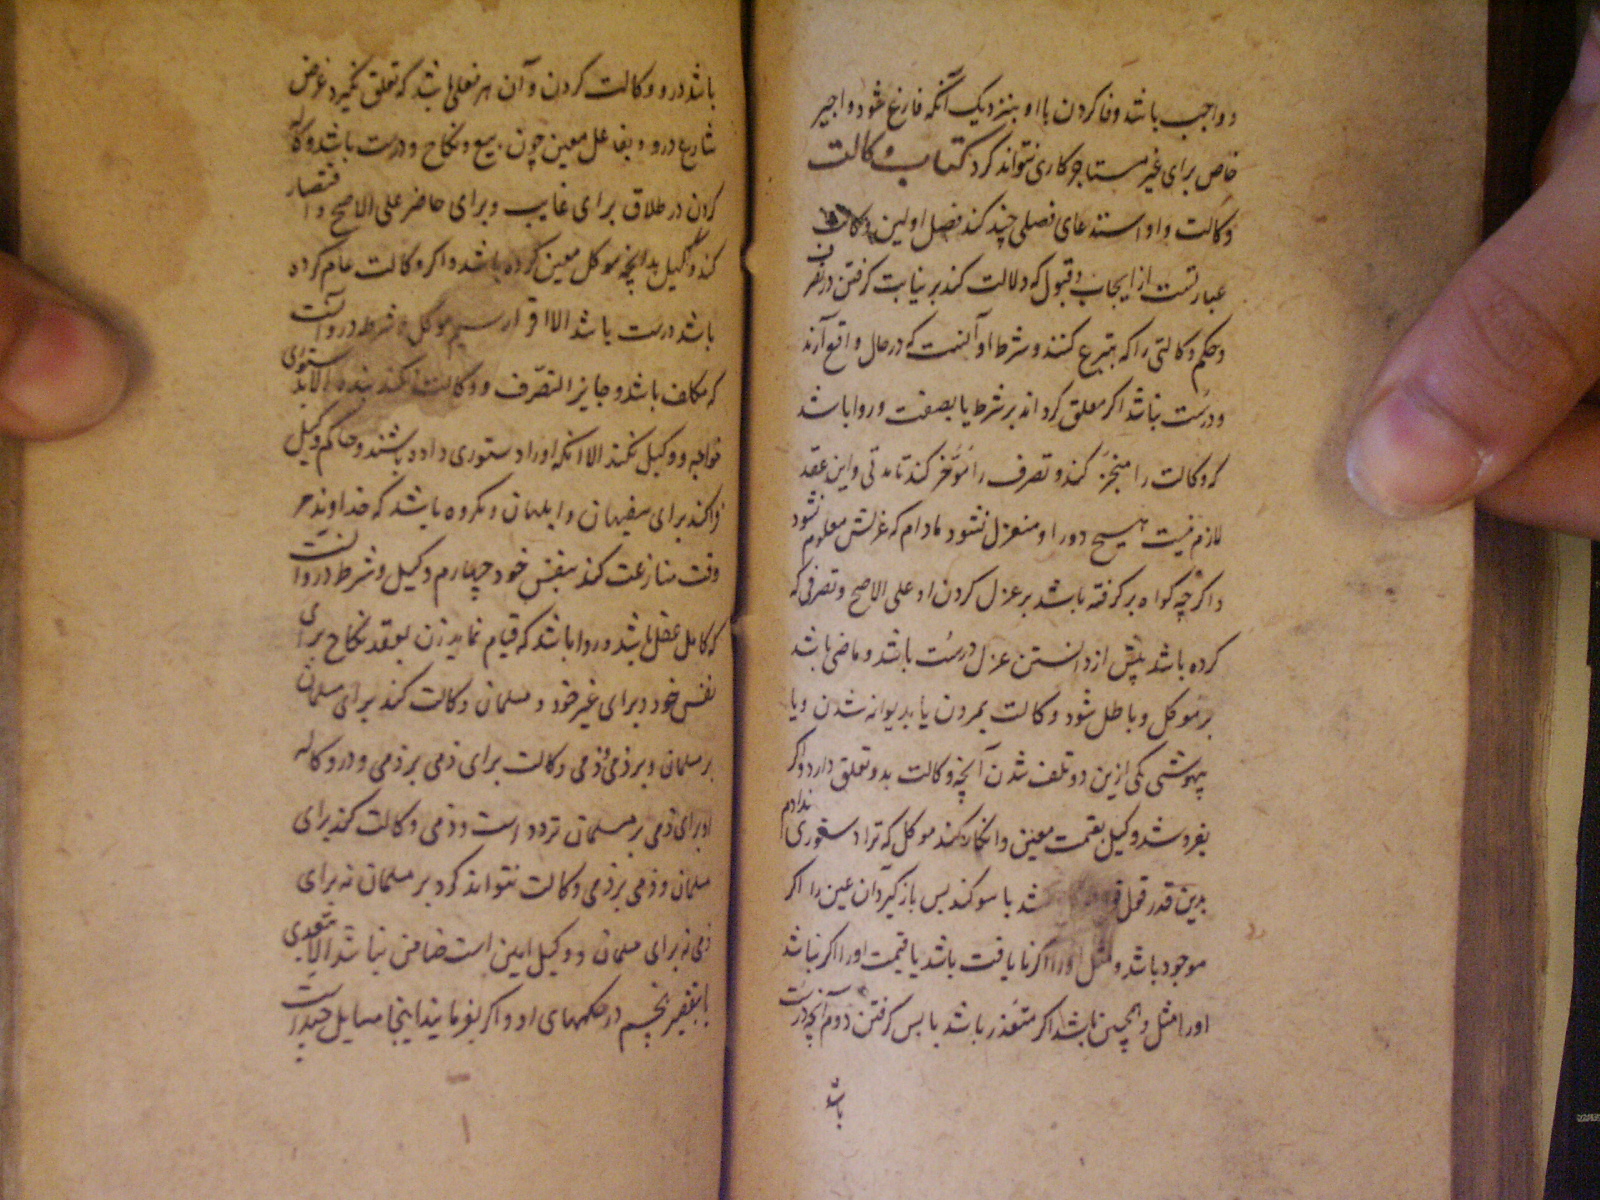 و واجب باشد وفا کردن با او بنزدیک آنکه فارغ شود و اجیر
خاص برای غیر مستاجر کاری نتواند کرد کتاب وکالت
وکالت و او استدعای فصلی چند کند فصل اولین وکالت
عبارتست از ایجاب و قبول که دلالت کند بر نیابت گرفتن در تصرف
و حکم وکالتی را که بتبرع کنند و شرط او آنست که در حال واقع آرند
و درست نباشد اگر معلق گرداند بر شرط یا بصفت و روا باشد
که وکالت را منجز کند و تصرف را مؤخر کند تا مدتی و این عقد
لازم نیست هیچ دو را و منعزل نشود مادام که عزلش معلوم نشود
و اگر چه گواه بر گرفته باشد بر عزل کردن او علی الاصح و تصرفی که
کرده باشد پیش از دانستن عزل درست باشد و ماضی باشد
بر موکل و باطل شود وکالت بمردن یا بدیوانه شدن و یا
بیهوشی یکی ازین دو و تلف شدن آنچه وکالت بدو تعلق دارد و اگر
بفروشد وکیل بقیمت معین و انکار کند موکل که ترا دستوری ندادم
بدین قدر قول شد با سوگند پس باز گیرد آن عین را اگر
موجود باشد و مثل او را اگر نایافت باشد یا قیمت او را اگر نباشد
او را مثل و همچنین باشد اگر متعذر باشد با پس گرفتن دوم آنچه درست
باشد
باشد درو وکالت کردن و آن هر فعلی باشد که تعلق نگیرد غرض
شارع درو بفاعل معین چون بیع و نکاح و درست باشد وکالة
کردن در طلاق برای غایب و برای حاضر علی الاصح و اقتصار
کند وکیل بدانچه موکل معین کرده باشد و اگر وکالت عام کرده
باشد درست باشد الا اقرار سیم موکل و شرط درو آنست
که مکلف باشد و جایز التصرف و وکالت نکند بنده الا بدستوری
خواجه و وکیل نکند الا آنکه او را دستوری داده باشند و حاکم وکیل
فرا کند برای سفیهان و ابلهان و مکروه باشد که خداوند
وقت منازعت کند بنفس خود چهارم وکیل و شرط درو آنست
که کامل عقل باشد و روا باشد که قیام نماید زن بعقد نکاح برای
نفس خود و برای غیر خود و مسلمان وکالت کند برای مسلمان
بر مسلمان و بر ذمی و ذمی وکالت برای ذمی بر ذمی و در وکاله
او برای ذمی بر مسلمان تردد است و ذمی وکالت کند برای
مسلمان و ذمی بر ذمی وکالت نتواند کرد بر مسلمان نه برای
ذمی نه برای مسلمان و وکیل امین است ضامن نباشد الا بتعدی
یا بتقصیر پنجم در حکمهای او و اگر بفرمایند اینجا مسایل چند است